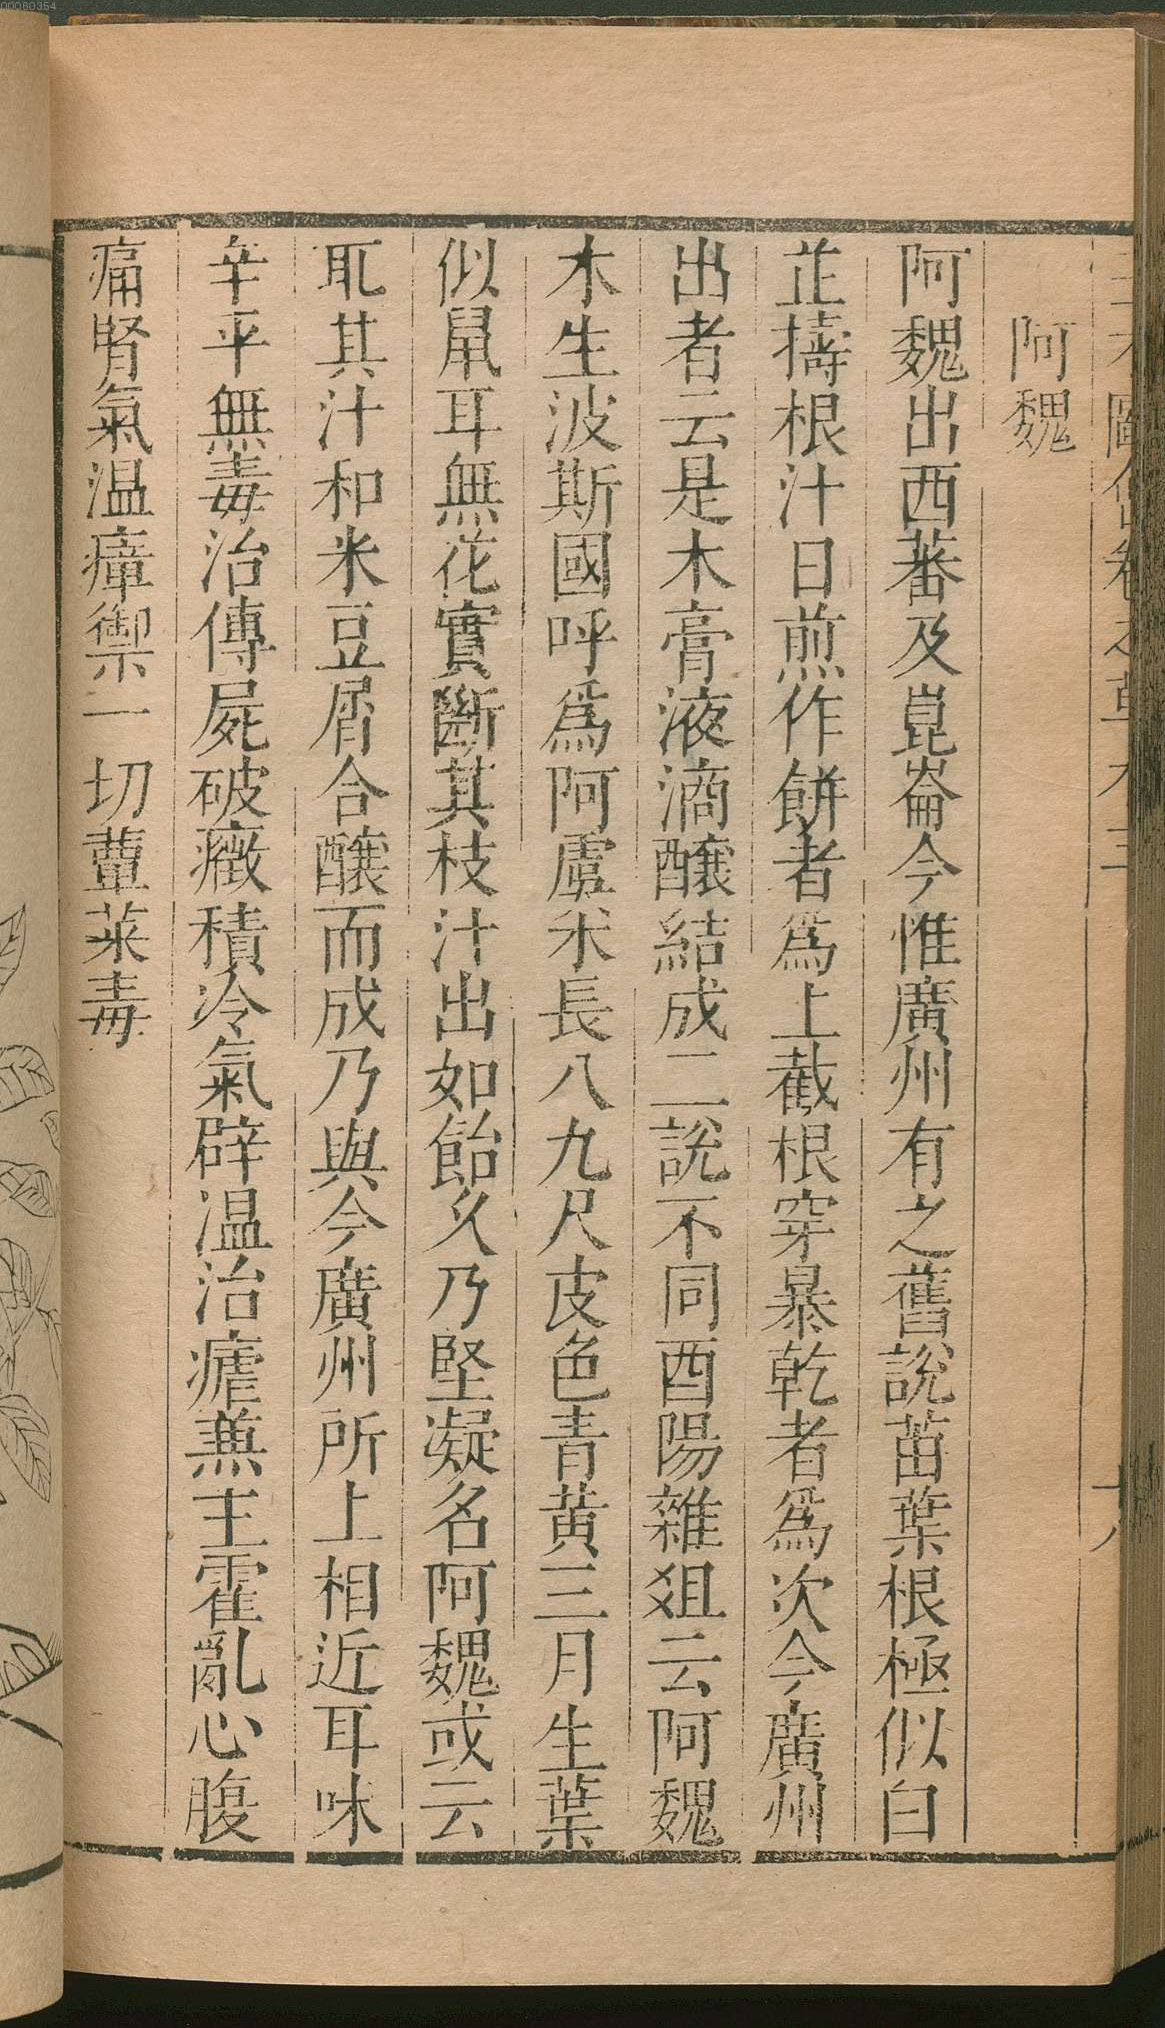 阿魏
阿魏出西蕃及崑崙今惟廣州有之舊說苗葉根極似白
芷擣根汁日煎作餅者爲上截根穿暴乾者爲次今廣州
出者云是木膏液滴釀結成二說不同酉陽雜俎云阿魏
木生波斯國呼爲阿虞木長八九尺皮色青黃三月生葉
似鼠耳無花實斷其枝汁出如飴久乃堅凝名阿魏或云
取其汁和米豆屑合釀而成乃與今廣州所上相近耳味
辛平無毒治傳屍破癥積冷氣辟温治瘧兼主霍亂心腹
痛腎氣温瘴禦一切蕈菜毒
00060354